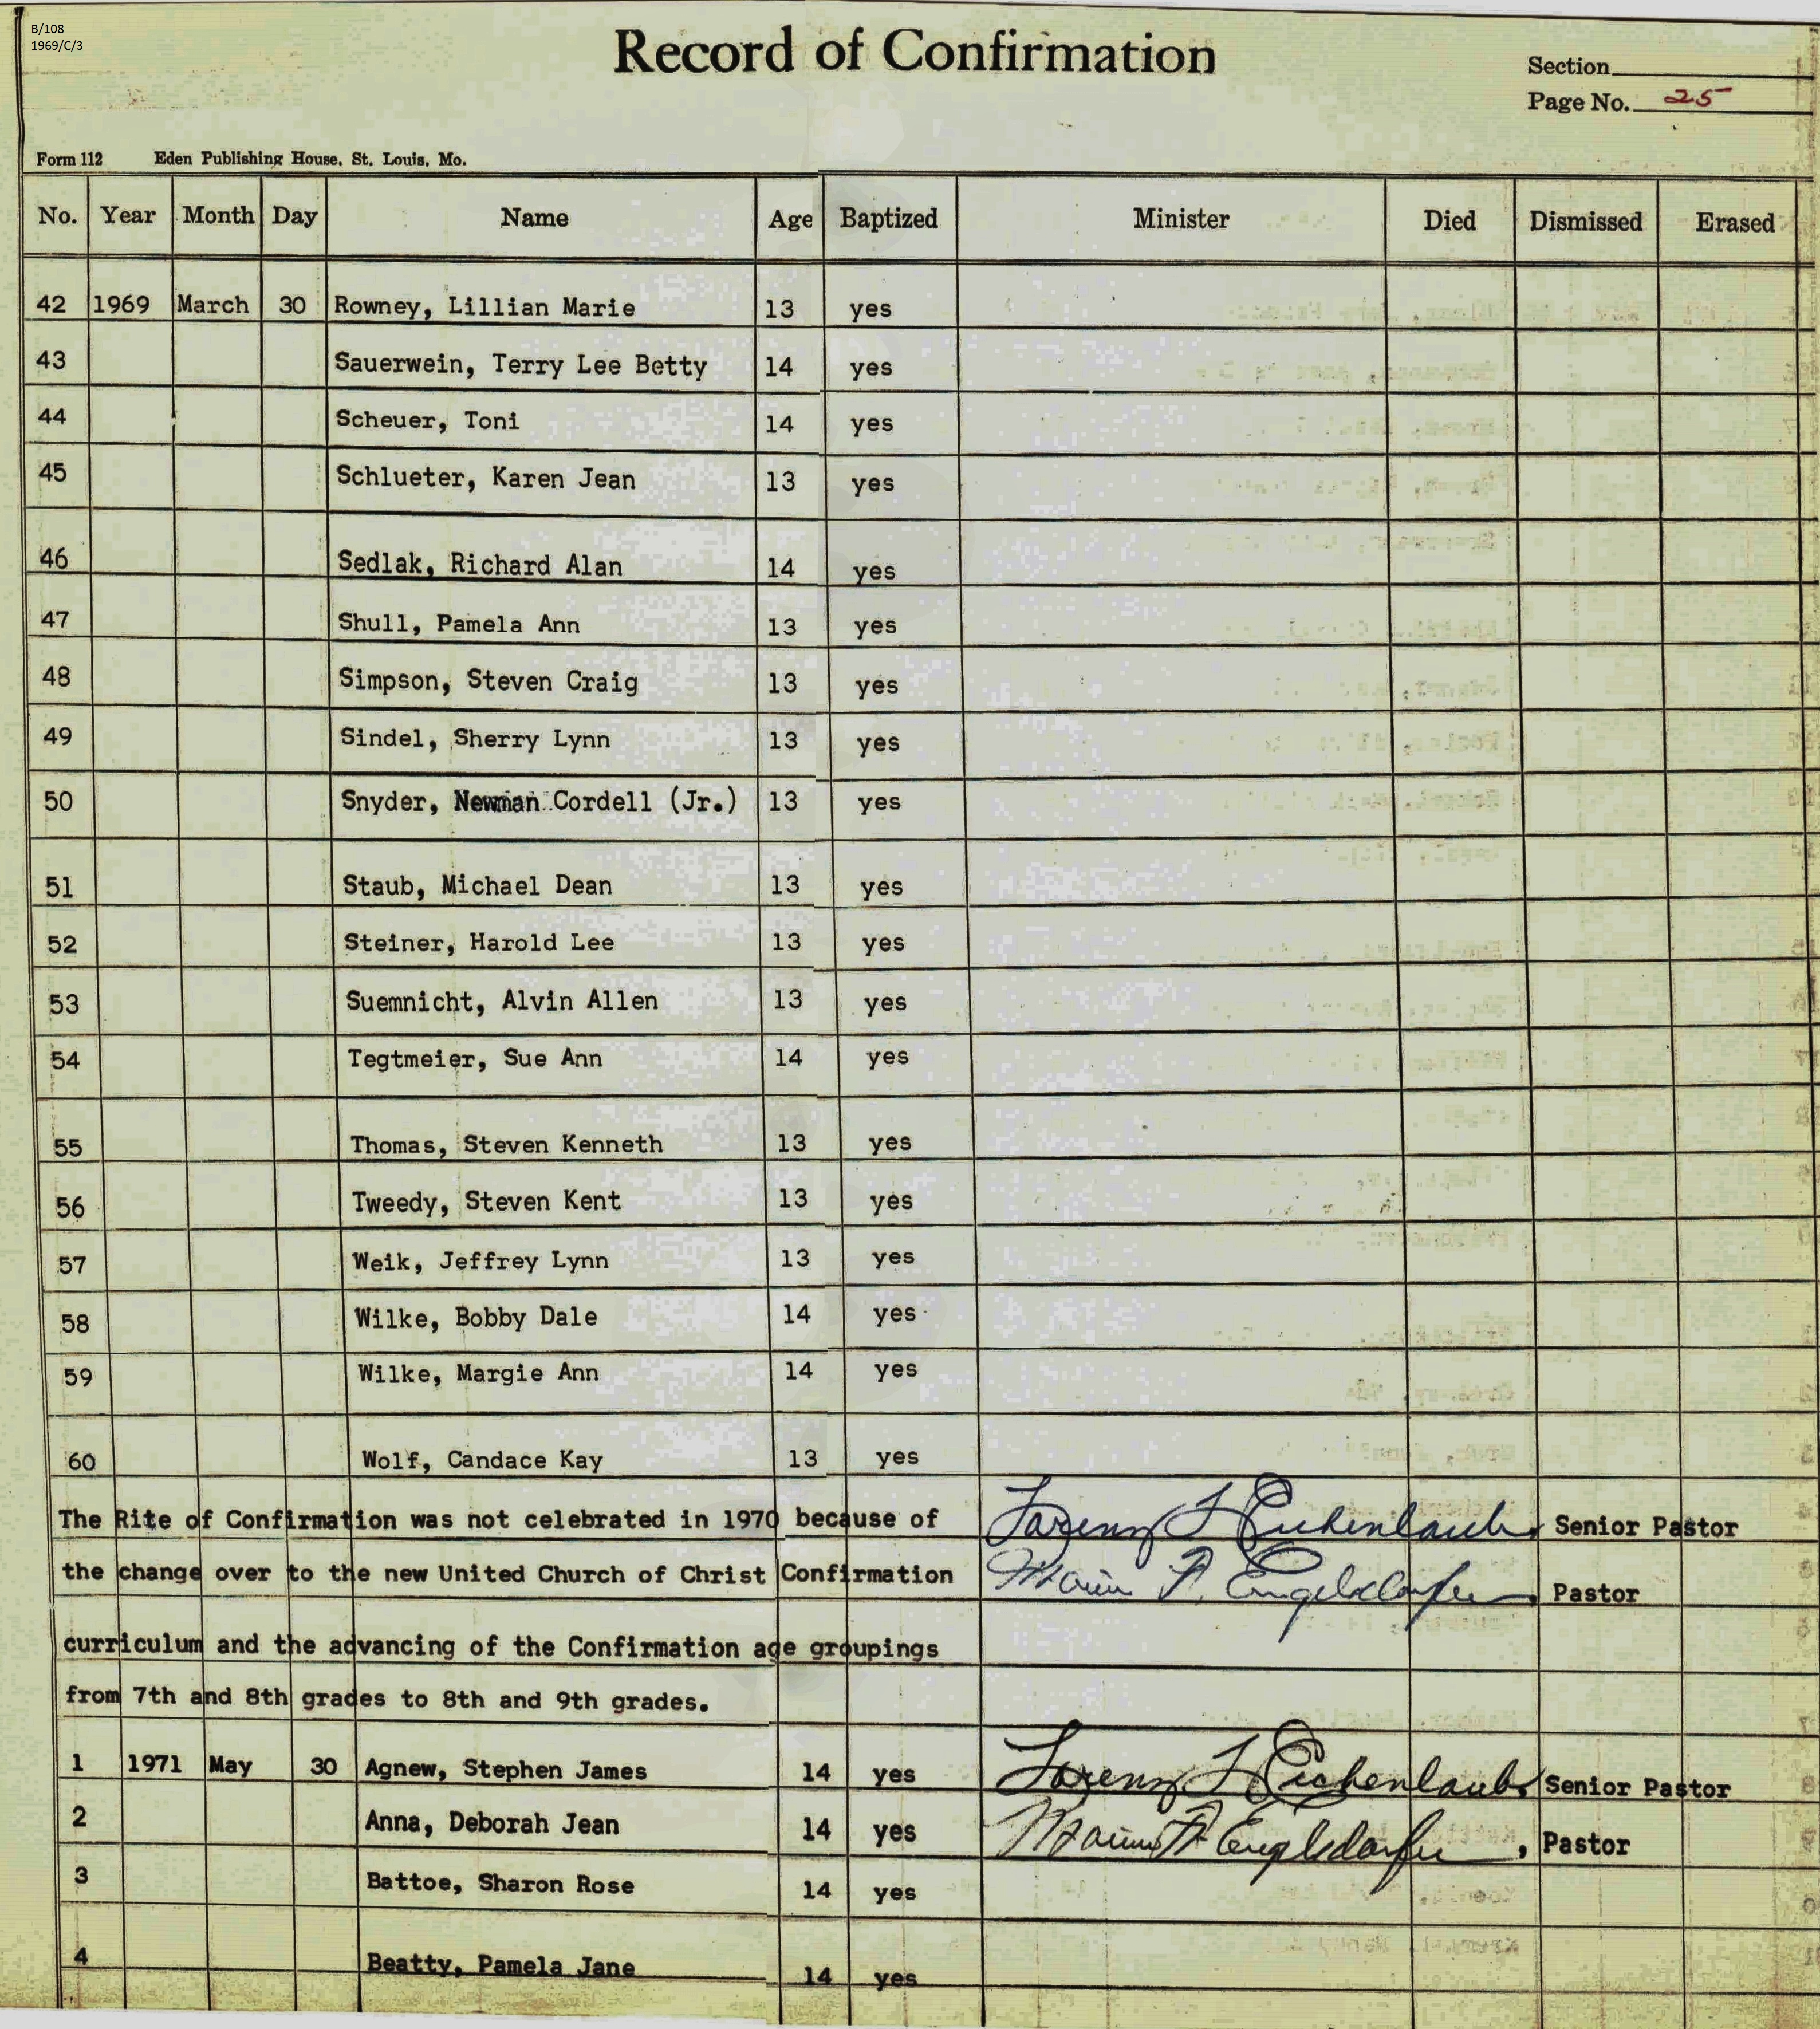 B/108
1969/C/3
Record of Confirmation
Section
Page No. 25
Form 112 Eden Publishing House, St. Louis, Mo.
No. Year Month Day Name Age Baptized Minister Died Dismissed Erased
42 1969 March 30 Rowney, Lillian Marie 13 yes
43 Sauerwein, Terry Lee Betty 14 yes
44 Scheuer, Toni 14 yes
45 Schlueter, Karen Jean 13 yes
46 Sedlak, Richard Alan 14 yes
47 Shull, Pamela Ann 13 yes
48 Simpson, Steven Craig 13 yes
49 Sindel, Sherry Lynn 13 yes
50 Snyder, Newman Cordell (Jr.) 13 yes
51 Staub, Michael Dean 13 yes
52 Steiner, Harold Lee 13 yes
53 Suemnicht, Alvin Allen 13 yes
54 Tegtmeier, Sue Ann 14 yes
55 Thomas, Steven Kenneth 13 yes
56 Tweedy, Steven Kent 13 yes
57 Weik, Jeffrey Lynn 13 yes
58 Wilke, Bobby Dale 14 yes
59 Wilke, Margie Ann 14 yes
60 Wolf, Candace Kay 13 yes
The Rite of Confirmation was not celebrated in 1970 because of Lorenz F Eichenlaub, Senior Pastor
the change over to the new United Church of Christ Confirmation F. Engelsdorfer, Pastor
curriculum and the advancing of the Confirmation age groupings
from 7th and 8th grades to 8th and 9th grades.
1 1971 May 30 Agnew, Stephen James 14 yes Lorenz F Eichenlaub, Senior Pastor
2 Anna, Deborah Jean 14 yes F Engelsdorfer, Pastor
3 Battoe, Sharon Rose 14 yes
4 Beatty, Pamela Jane 14 yes